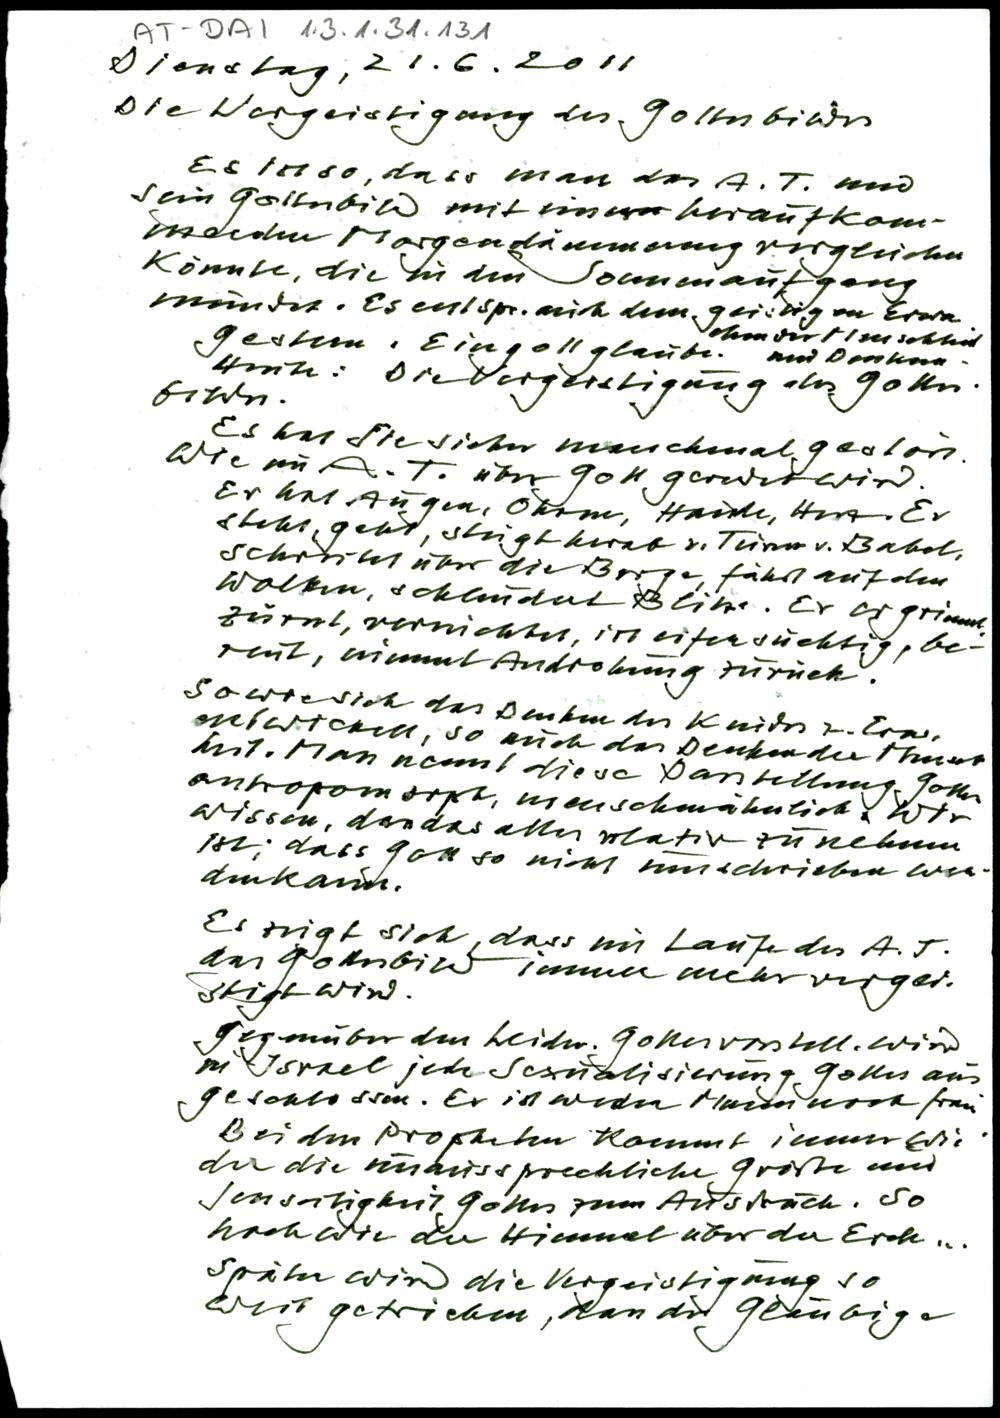 AT-DAI 1.3.1.31.131
Dienstag, 21.6.2011
Die Vergeistigung des Gottesbildes
Es ist so, dass man das A.T. und
sein Gottesbild mit einer heraufkom-
menden Morgendämmerung vergleichen
könnte, die in den Sonnenaufgang
mündet. Es entspr. auch dem geistigen Erwa-
chen der Menschheit
und Denken.
Gestern: Eingottglaube.
Heute: Die Vergeistigung des Gottes-
bildes.
Es hat Sie sicher manchmal gestört.
Wie im A.T. über Gott geredet wird.
Er hat Augen, Ohren, Hände, Herz. Er
steht, geht, steigt herab z. Turm v. Babel,
schreitet über die Berge, fährt auf den
Wolken, schleudert Blitze. Er ergrimmt,
zürnt, vernichtet, ist eifersüchtig, be-
reut, nimmt Androhung zurück.
So wie sich das Denken des Kindes z. Erw.
entwickelt, so auch das Denken der Mensch
heit. Man nennt diese Darstellung Gottes
antropomorph, menschenähnlich. Wir
wissen, dass das alles relativ zu nehmen
ist; dass Gott so nicht umschrieben wer-
den kann.
Es zeigt sich, dass im Laufe des A.T.
das Gottesbild immer mehr vergei-
stigt wird.
Gegenüber den heidn. Gottesvorstell. wird
in Israel jede Sexualisierung Gottes aus
geschlossen. Er ist weder Mann noch Frau
Bei den Propheten kommt immer wie-
der die unaussprechliche Größe und
Jenseitigkeit Gottes zum Ausdruck. So
hoch wie der Himmel über der Erde ...
Später wird die Vergeistigung so
weit getrieben, dass der Gläubige